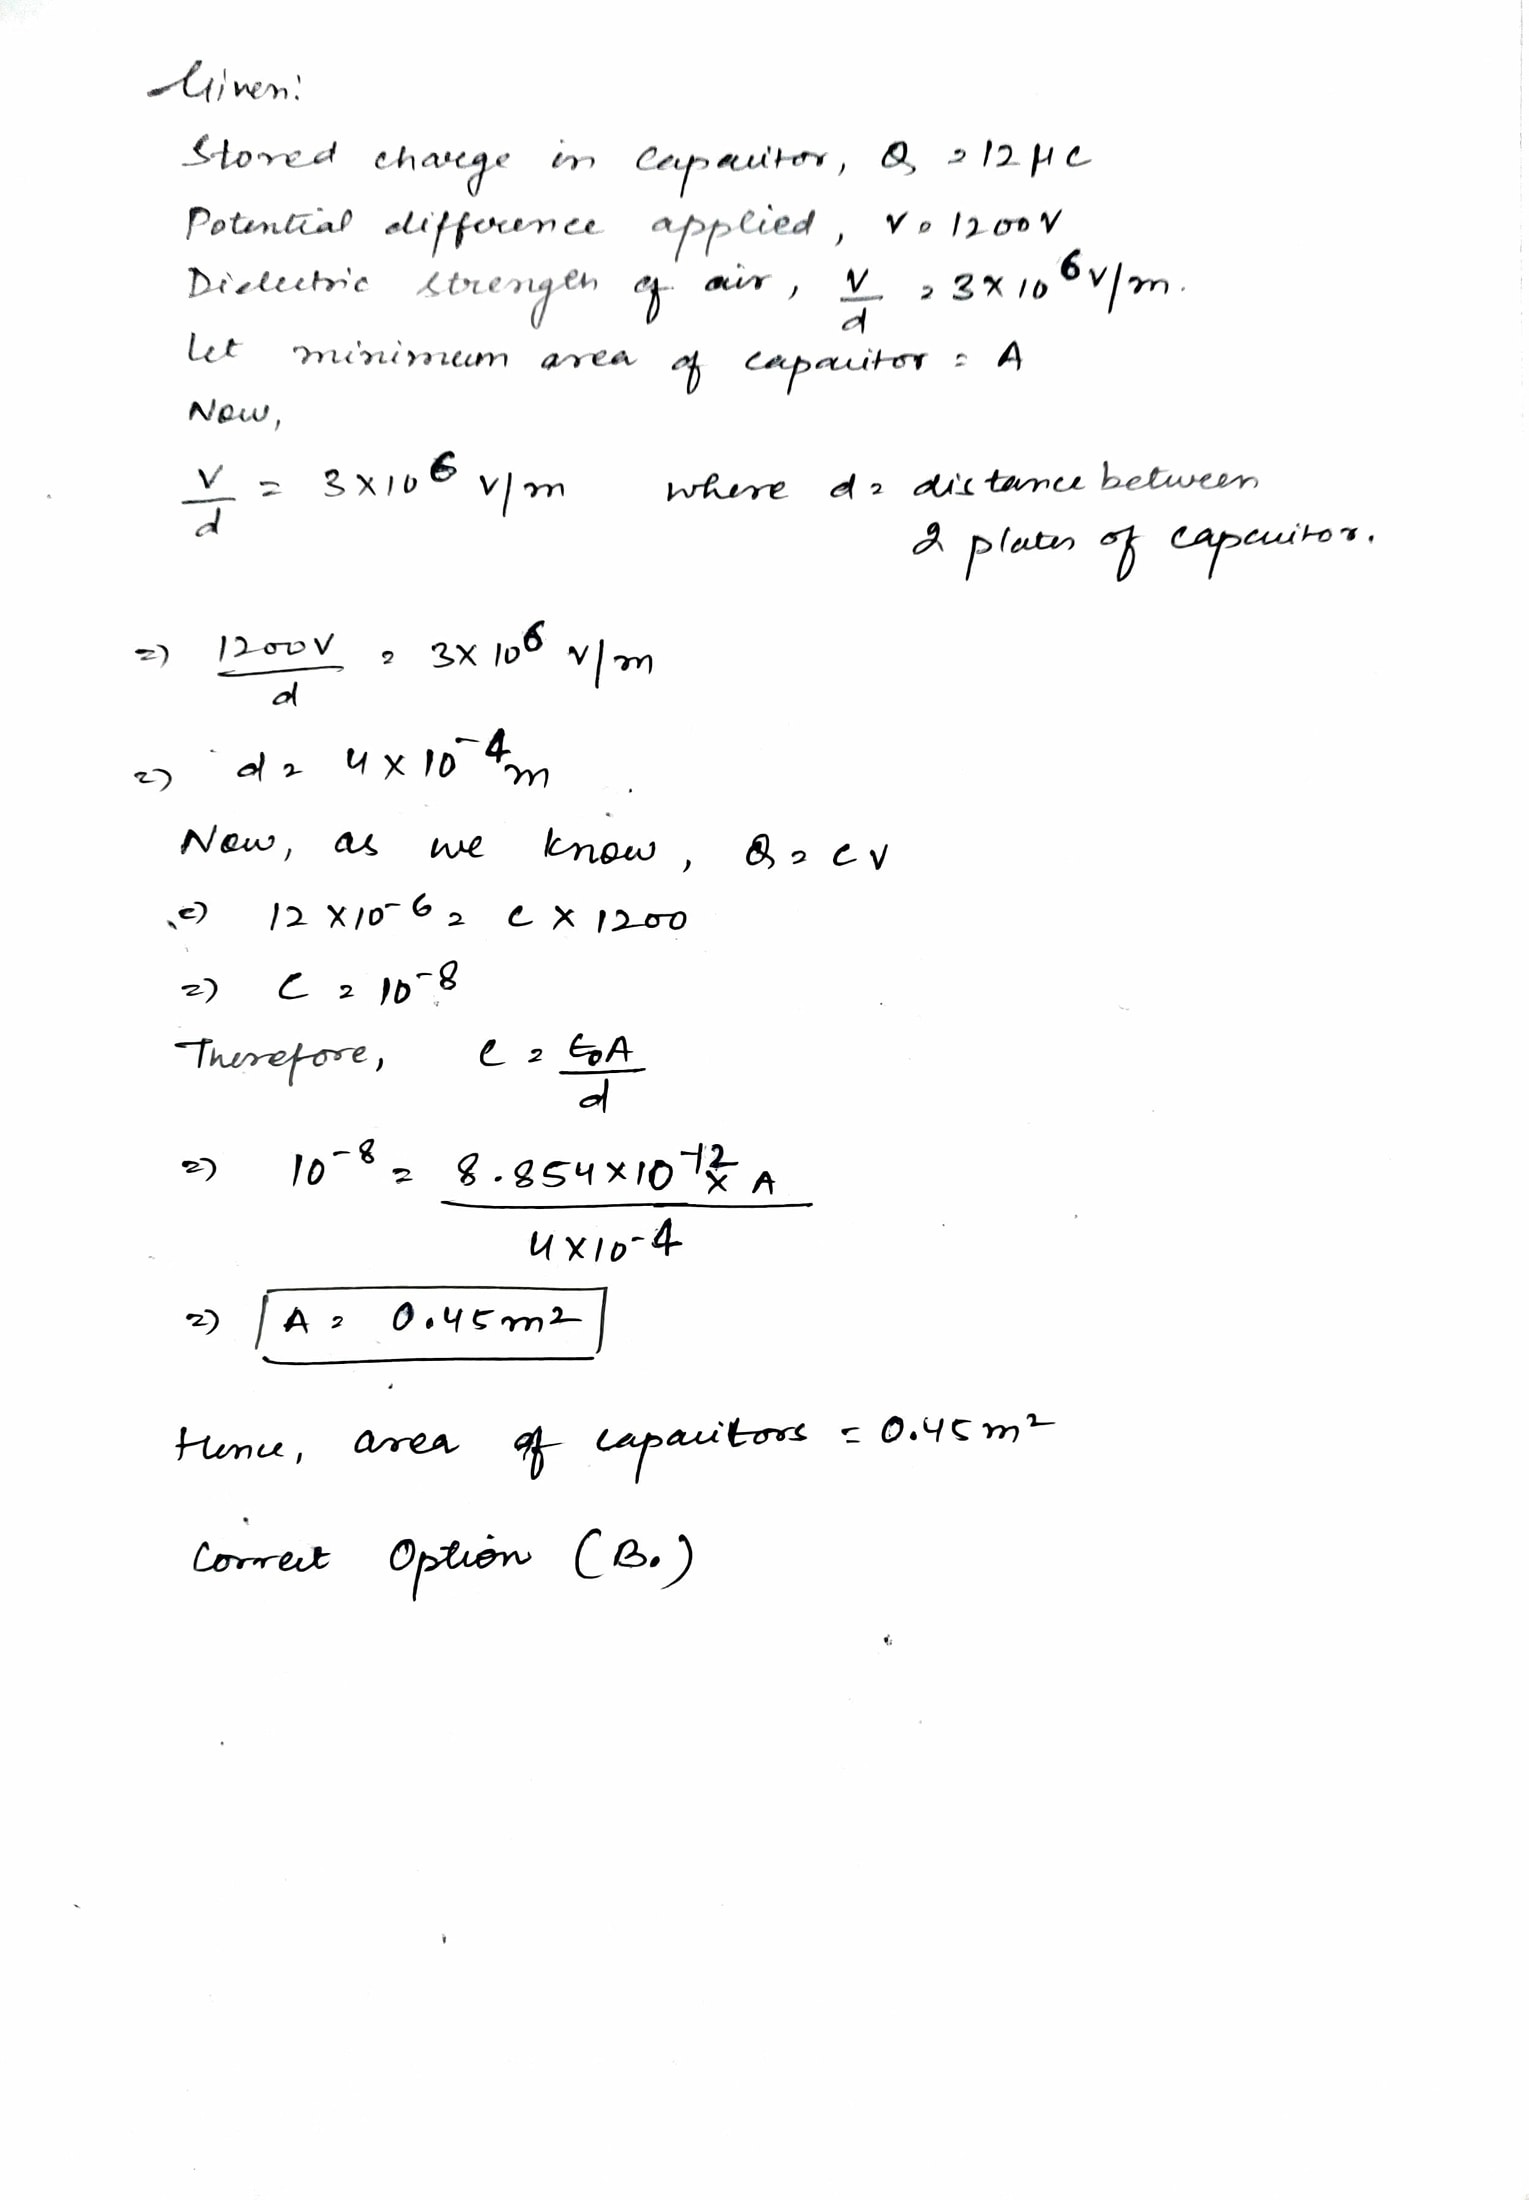 Given:
Stored charge in capacitor, Q = 12 μC
Potential difference applied, V = 1200V
Dielectric strength of air, V/d = 3×10^6 V/m.
Let minimum area of capacitor = A
Now,
V/d = 3×10^6 V/m where d = distance between
2 plates of capacitor.
=) 1200V/d = 3×10^6 V/m
=) d = 4×10^-4 m
Now, as we know, Q = CV
=) 12×10^-6 = C×1200
=) C = 10^-8
Therefore, C = ε0A/d
=) 10^-8 = 8.854×10^-12 × A / 4×10^-4
=) A = 0.45 m2
Hence, area of capacitors = 0.45 m²
Correct Option (B.)